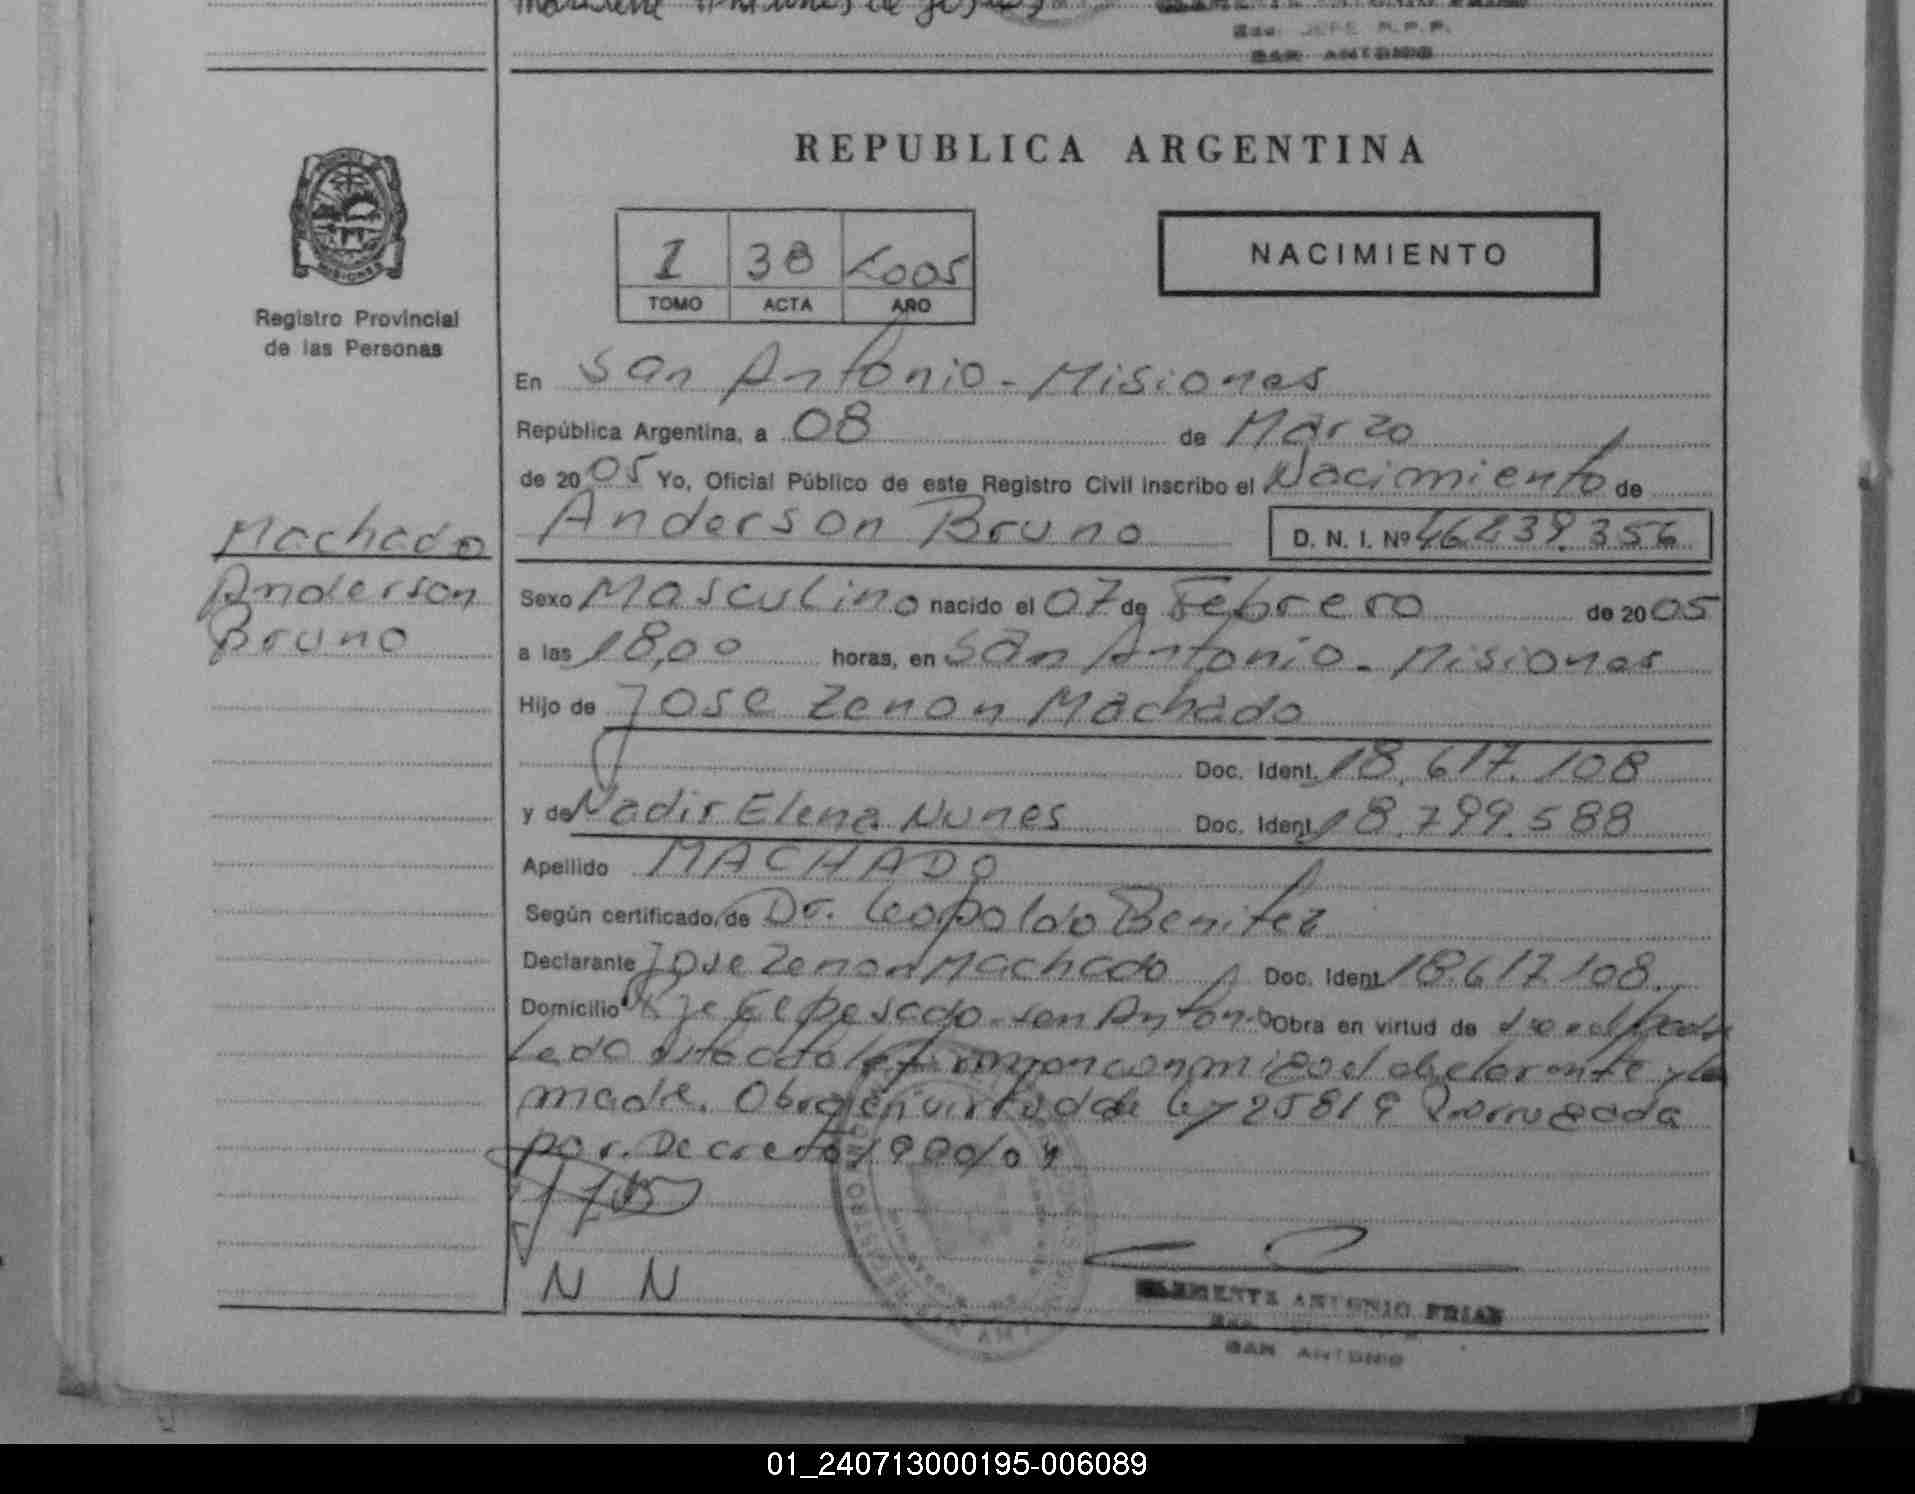 SAN ANTONIO
REPUBLICA ARGENTINA
1 38 2005
TOMO ACTA AÑO
NACIMIENTO
Registro Provincial
de las Personas
En San Antonio - Misiones
República Argentina, a 08 de Marzo
de 2005 Yo, Oficial Público de este Registro Civil inscribo el Nacimiento de
Anderson Bruno D. N. I. Nº
Machado
Anderson
Bruno
Sexo Masculino nacido el 07 de Febrero de 2005
a las 18,00 horas, en San Antonio - Misiones
Hijo de Jose Zenon Machado
Doc. Ident. 18.617.108
y de Nadir Elena Nunes Doc. Ident. 18.799.588
Apellido MACHADO
Según certificado de Dr. Leopoldo Benitez
Declarante Jose Zenon Machado Doc. Ident. 18.617.108.
Domicilio Pesado - San Antonio Obra en virtud de
conmigo el declarante y la
madre. Obra en virtud de ley 25819 Prorrogada
por Decreto
N N
CLEMENTE ANTONIO FRIAS
SAN ANTONIO
01_240713000195-006089